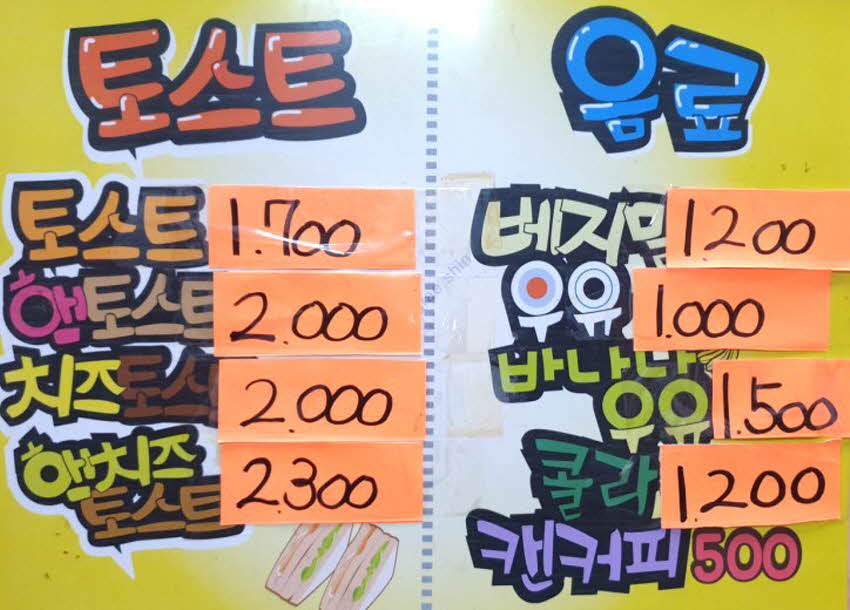 토스트
토스트 1.700
햄토스트 2.000
치즈토스 2.000
햄치즈
토스트 2.300
음료
베지밀 1.200
우유 1.000
바나나
우유 1.500
콜라 1.200
캔커피 500